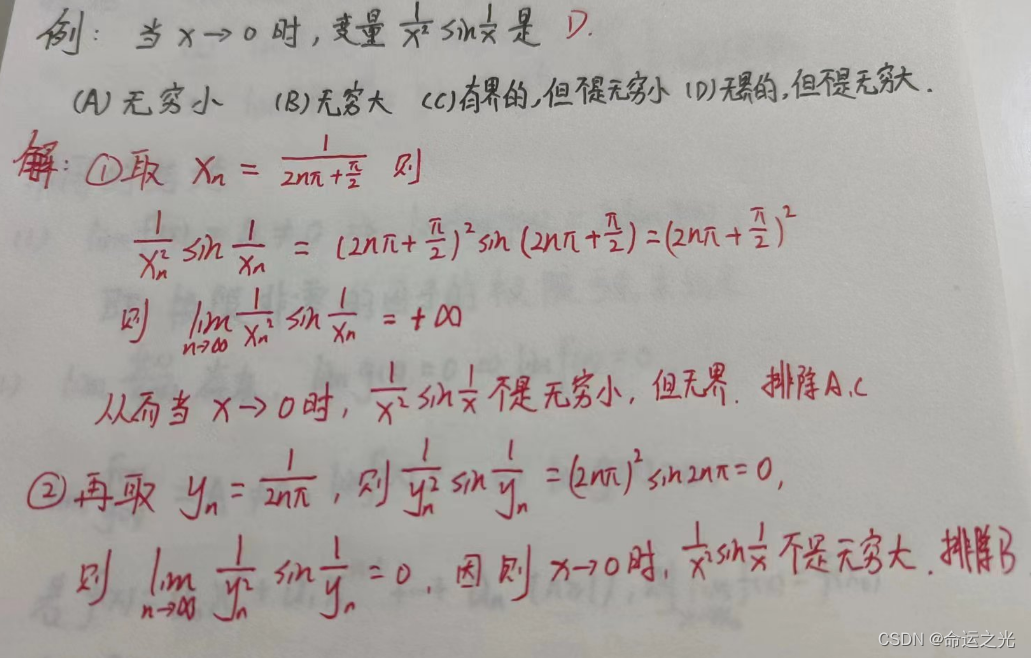 例: 当 x→0 时, 变量 1/x² sin 1/x 是 D.
(A) 无穷小 (B) 无穷大 (C) 有界的,但不是无穷小 (D) 无界的,但不是无穷大.
解: ①取 xₙ = 1/(2nπ+π/2) 则
1/xₙ² sin 1/xₙ = (2nπ+π/2)² sin (2nπ+π/2) = (2nπ+π/2)²
则 lim n→∞ 1/xₙ² sin 1/xₙ = +∞
从而当 x→0 时, 1/x² sin 1/x 不是无穷小, 但无界. 排除A、C
②再取 yₙ = 1/2nπ, 则 1/yₙ² sin 1/yₙ = (2nπ)² sin2nπ = 0,
则 lim n→∞ 1/yₙ² sin 1/yₙ = 0. 因则 x→0 时, 1/x² sin 1/x 不是无穷大. 排除B
CSDN @命运之光